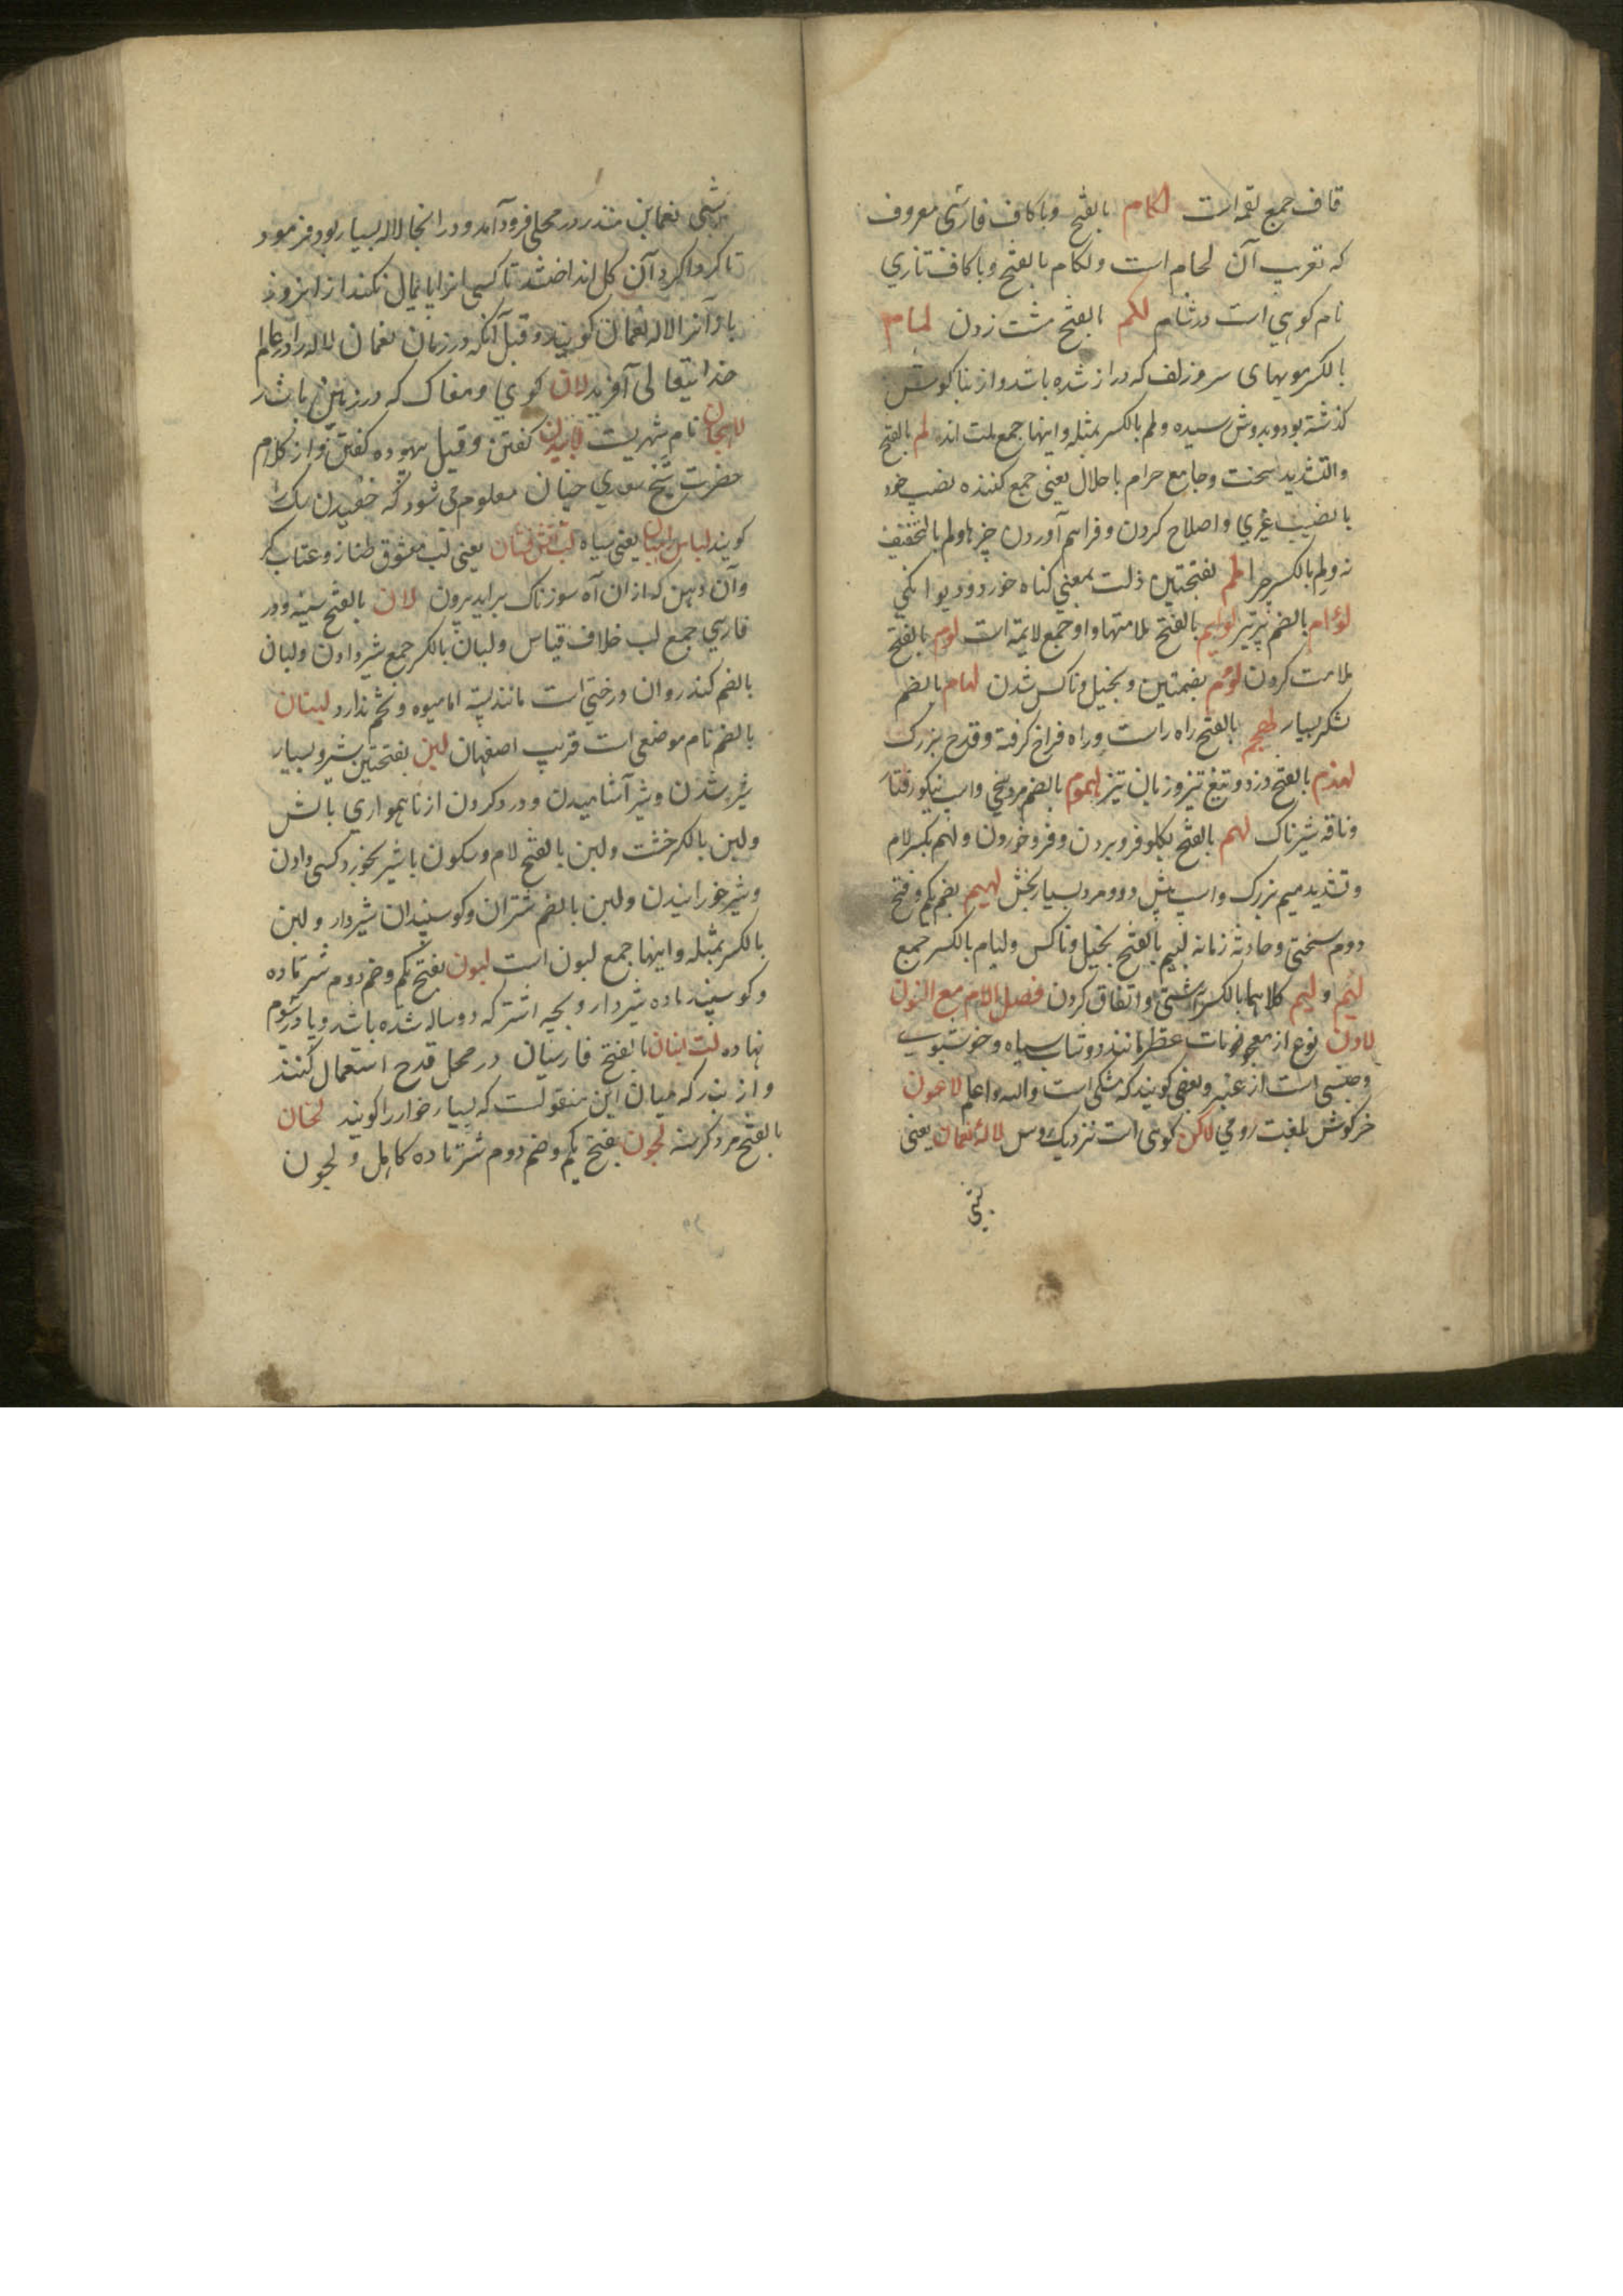 قاف جمع لقمه است لکام بالفتح وباکاف فارسی معروف
که تعریب آن لجام است ولکام بالفتح وباکاف تازی
نام کوهی است در شام لکم بالفتح مشت زدن لمام
بالکسر مویهای سر وزلف که دراز شده باشد واز بنا کوش
کذشته بود وبدوش رسیده ولم بالکسر بمثله واینها جمع لمت اند لم بالفتح
والتشدید سخت وجامع حرام باحلال یعنی جمع کننده نصیب خود
بانصیب غیری واصلاح کردن وفراهم آوردن چیزها ولم بالتخفیف
نه ولم بالکسر چرا لمم بفتحتین ذلت بمعنی کناه خورد ودیوانکی
لؤام بالضم پرتیر لوایم بالفتح ملامتها واو جمع لایمه است لوم بالفتح
ملامت کردن لؤم بضمتین وبخیل وناکس شدن لهام بالضم
لشکر بسیار لهجم بالفتح راه راست وراه فراخ کرفته وقدح بزرک
لهذم بالفتح دزد وتیغ تیز وزبان تیز لهموم بالضم مرد سخی واسب نیکو رفتار
وناقه شیرناک لهم بالفتح بکلو فرو بردن وفرو خوردن ولهم بکسر لام
وتشدید میم بزرک واسب پیش دو ومرد بسیار بخش لهیم بضم یکم وفتح
دوم سختی وحادثه زمانه لئیم بالفتح بخیل وناکس ولیام بالکسر جمع
لئم ولیم کلاهما بالکسر آشتی واتفاق کردن فصل اللام مع النون
لادن نوع از معجونات عطر مانند دوشاب سیاه وخوشبوی
وجنسی است از عنبر وبعضی کویند که مشکی است والله واعلم لاعون
خرکوش بلغت رومی لاکن کوهی است نزدیک روس لاله نعمان یعنی
شبی
شبی نعمان بن منذر در محلی فرود آمد ودر انجا لاله بسیار بود فرمود
تا کرداکرد آن کل انداختند تا کسی انرا پایمال نکند از انروز
باز آنرا لاله نعمان کویند وقیل آنکه در زمان نعمان لاله را در عالم
خدایتعالی آفرید لان کوی ومغاک که در زمین باشد
لاهجان نام شهریست لاییدن کفتن وقیل بیهوده کفتن واز کلام
حضرت شیخ سعدی چنان معلوم می شود که خفیدن سک
کویند لباس راهبان یعنی سیاه لب آتش فشان یعنی لب معشوق طناز وعتاب کر
وآن دهن که از ان آه سوزناک براید بیرون لبان بالفتح سینه ودر
فارسی جمع لب خلاف قیاس ولبان بالکسر جمع شیر دادن ولبان
بالضم کندر وان درختی است مانند پسته اما میوه وتخم ندارد لبنان
بالضم نام موضعی است قریب اصفهان لبن بفتحتین شیر وبسیار
شیر شدن وشیر آشامیدن ودرد کردن از ناهمواری بالش
ولبن بالکسر خشت ولبن بالفتح لام وسکون با شیر بخورد کسی دادن
وشیر خورانیدن ولبن بالضم شتران وکوسپندان شیردار ولبن
بالکسر بمثله واینها جمع لبون است لبون بفتح یکم وضم دوم شتر ماده
وکوسپند ماده شیردار وبچه اشتر که دوساله شده باشد وپا در سوم
نهاده لت انبان بالفتح فارسیان در محل قدح استعمال کنند
واز بزرکه میان این منقولست که بسیار خوار را کویند لتحان
بالفتح مرد کرسنه لجون بفتح یکم وضم دوم شتر ماده کاهل ولجون